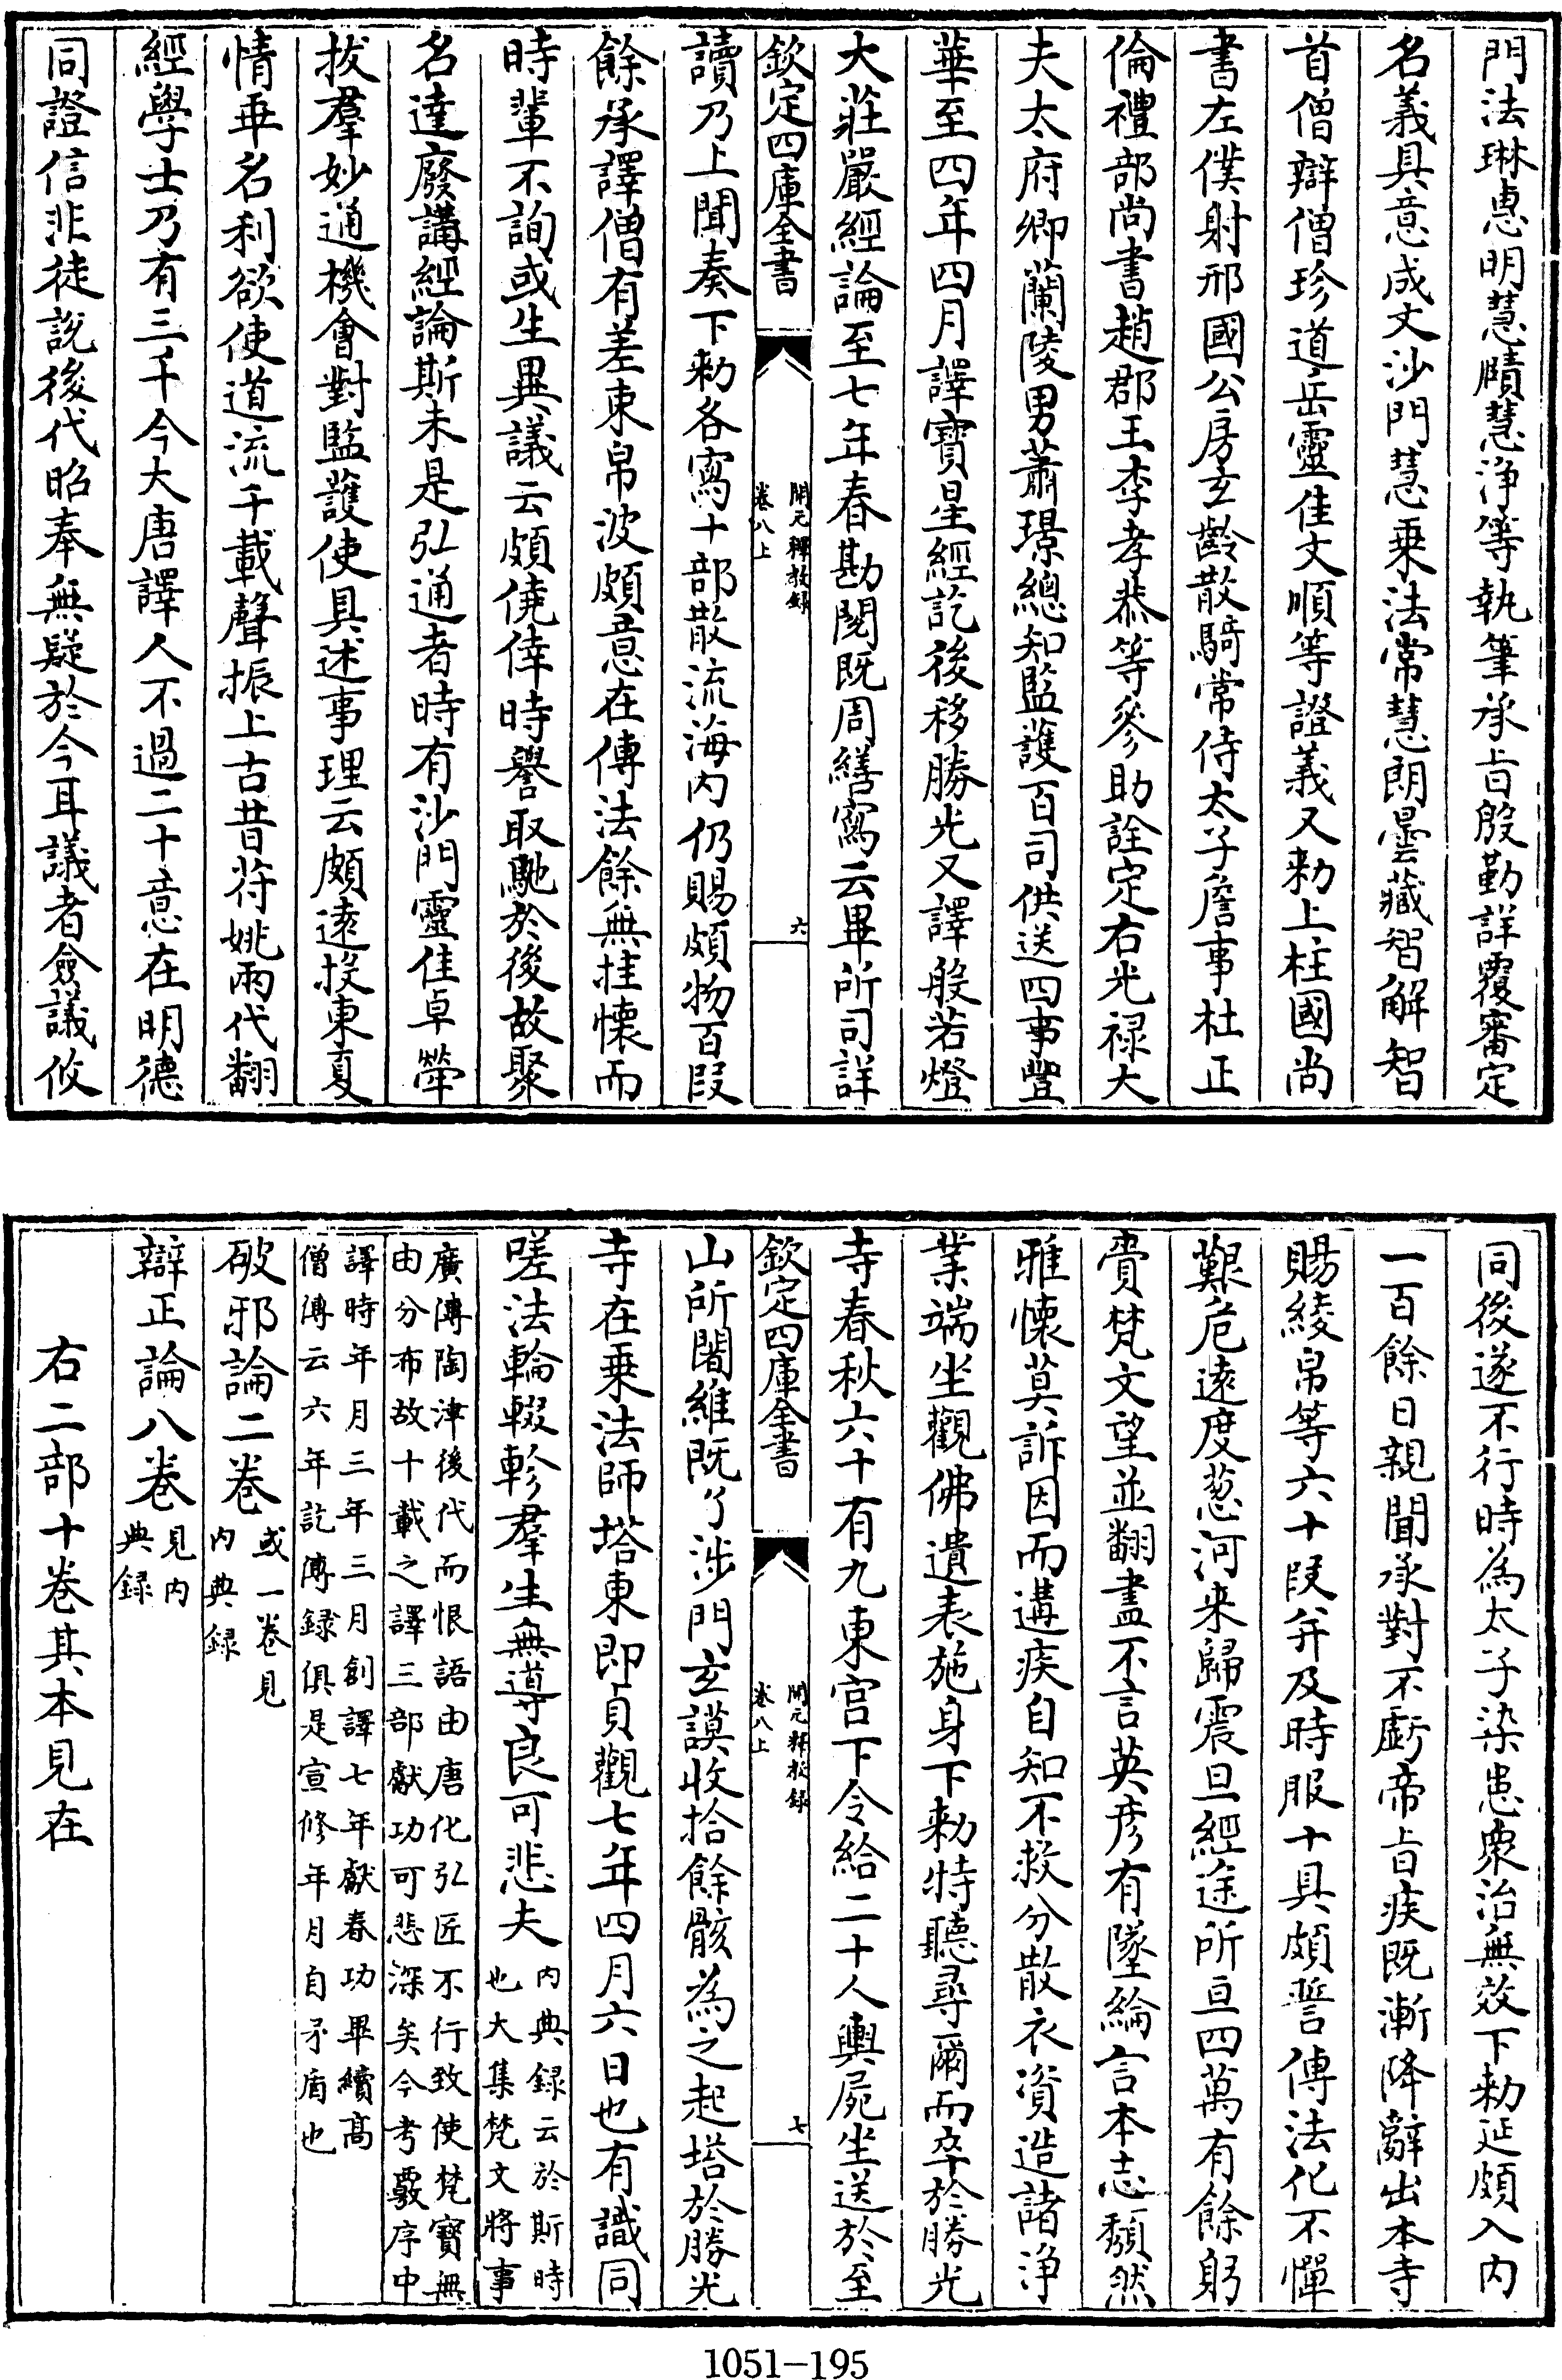 門法琳惠明慧賾慧淨等執筆承旨殷勤詳覆審定
名義具意成文沙門慧乗法常慧朗曇藏智解智
首僧辯僧珍道岳靈佳文順等證義又勅上柱國尚
書左僕射邢國公房玄齡散騎常侍太子詹事杜正
倫禮部尚書趙郡王李孝恭等參助詮定右光禄大
夫太府卿蘭陵男蕭璟總知監護百司供送四事豐
華至四年四月譯寳星經訖後移勝光又譯般若燈
大莊嚴經論至七年春勘閱既周繕寫云畢所司詳
欽定四庫全書
開元釋教録
卷八上
六
讀乃上聞奏下勅各寫十部散流海内仍賜頗物百段
餘承譯僧有差束帛波頗意在傳法餘無挂懷而
時輩不詢或生異議云頗僥倖時譽取馳於後故聚
名達廢講經論斯未是弘通者時有沙門靈佳卓犖
拔羣妙通機會對監護使具述事理云頗逺投東夏
情乖名利欲使道流千載聲振上古昔苻姚兩代翻
經學士乃有三千今大唐譯人不過二十意在明德
同證信非徒説後代昭奉無疑於今耳議者僉議攸
同後遂不行時為太子染患衆治無效下勅延頗入内
一百餘日親聞承對不虧帝旨疾既漸降辭出本寺
賜綾帛等六十段并及時服十具頗誓傳法化不憚
艱危逺度葱河来歸震旦經途所亘四萬有餘躬
賫梵文望並翻盡不言英彦有墜綸言本志頽然
雅懷莫訴因而遘疾自知不救分散衣資造諸淨
業端坐觀佛遺表施身下勅特聽尋爾而卒於勝光
寺春秋六十有九東宫下令給二十人輿屍坐送於至
欽定四庫全書
開元釋教録
卷八上
七
山所闍維既了沙門玄謨收拾餘骸為之起塔於勝光
寺在乗法師塔東即貞觀七年四月六日也有識同
嗟法輪輟軫羣生無導良可悲夫内典録云於斯時
也大集梵文將事
廣傳陶津後代而恨語由唐化弘匠不行致使梵寳無
由分布故十載之譯三部獻功可悲深矣今考覈序中
譯時年月三年三月創譯七年獻春功畢續高
僧傳云六年訖傳録俱是宣修年月自矛盾也
破邪論二卷或一卷見
内典録
辯正論八卷見内
典録
右二部十卷其本見在
1051-195